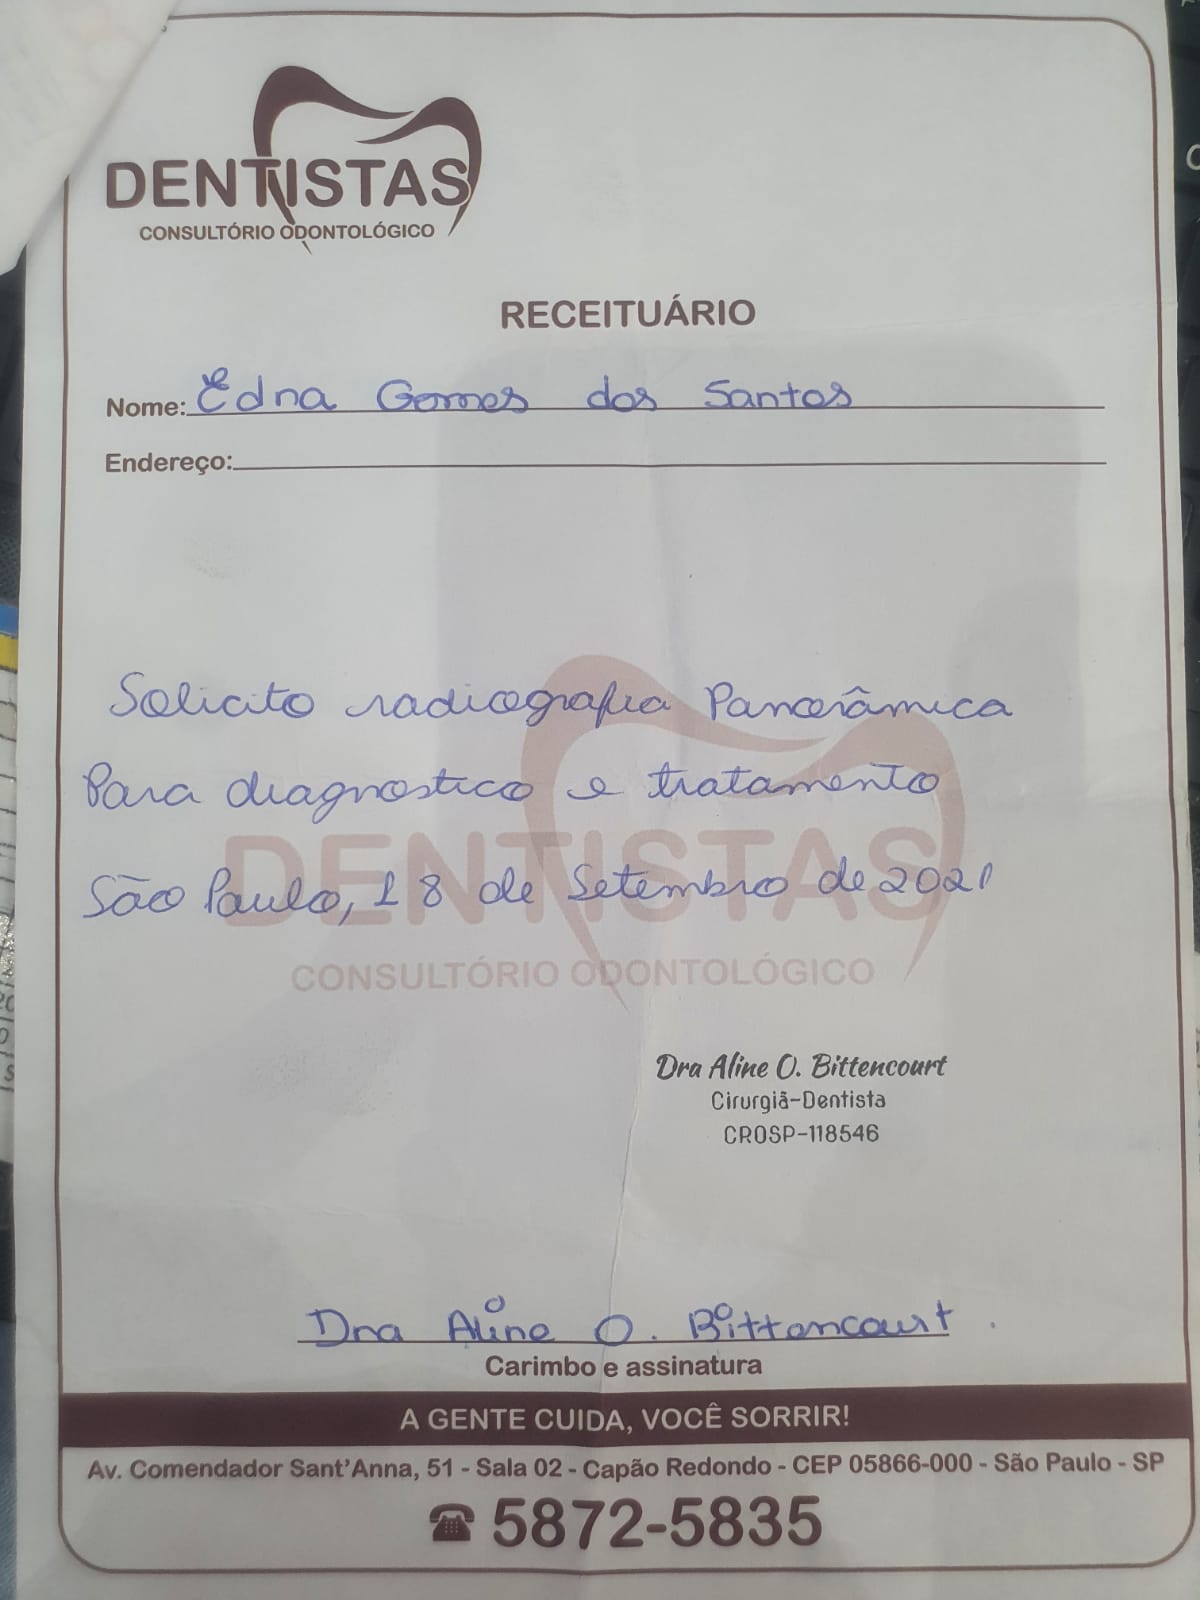 DENTISTAS
CONSULTÓRIO ODONTOLÓGICO
RECEITUÁRIO
Nome: Edna Gomes dos Santos
Endereço:
Solicito radiografia Panorâmica
Para diagnostico e tratamento
São Paulo, 18 de Setembro de 2021
DENTISTAS
CONSULTÓRIO ODONTOLÓGICO
Dra Aline O. Bittencourt
Cirurgiã-Dentista
CROSP-118546
Dra Aline O. Bittencourt.
Carimbo e assinatura
A GENTE CUIDA, VOCÊ SORRIR!
Av. Comendador Sant'Anna, 51 - Sala 02 - Capão Redondo - CEP 05866-000 - São Paulo - SP
5872-5835